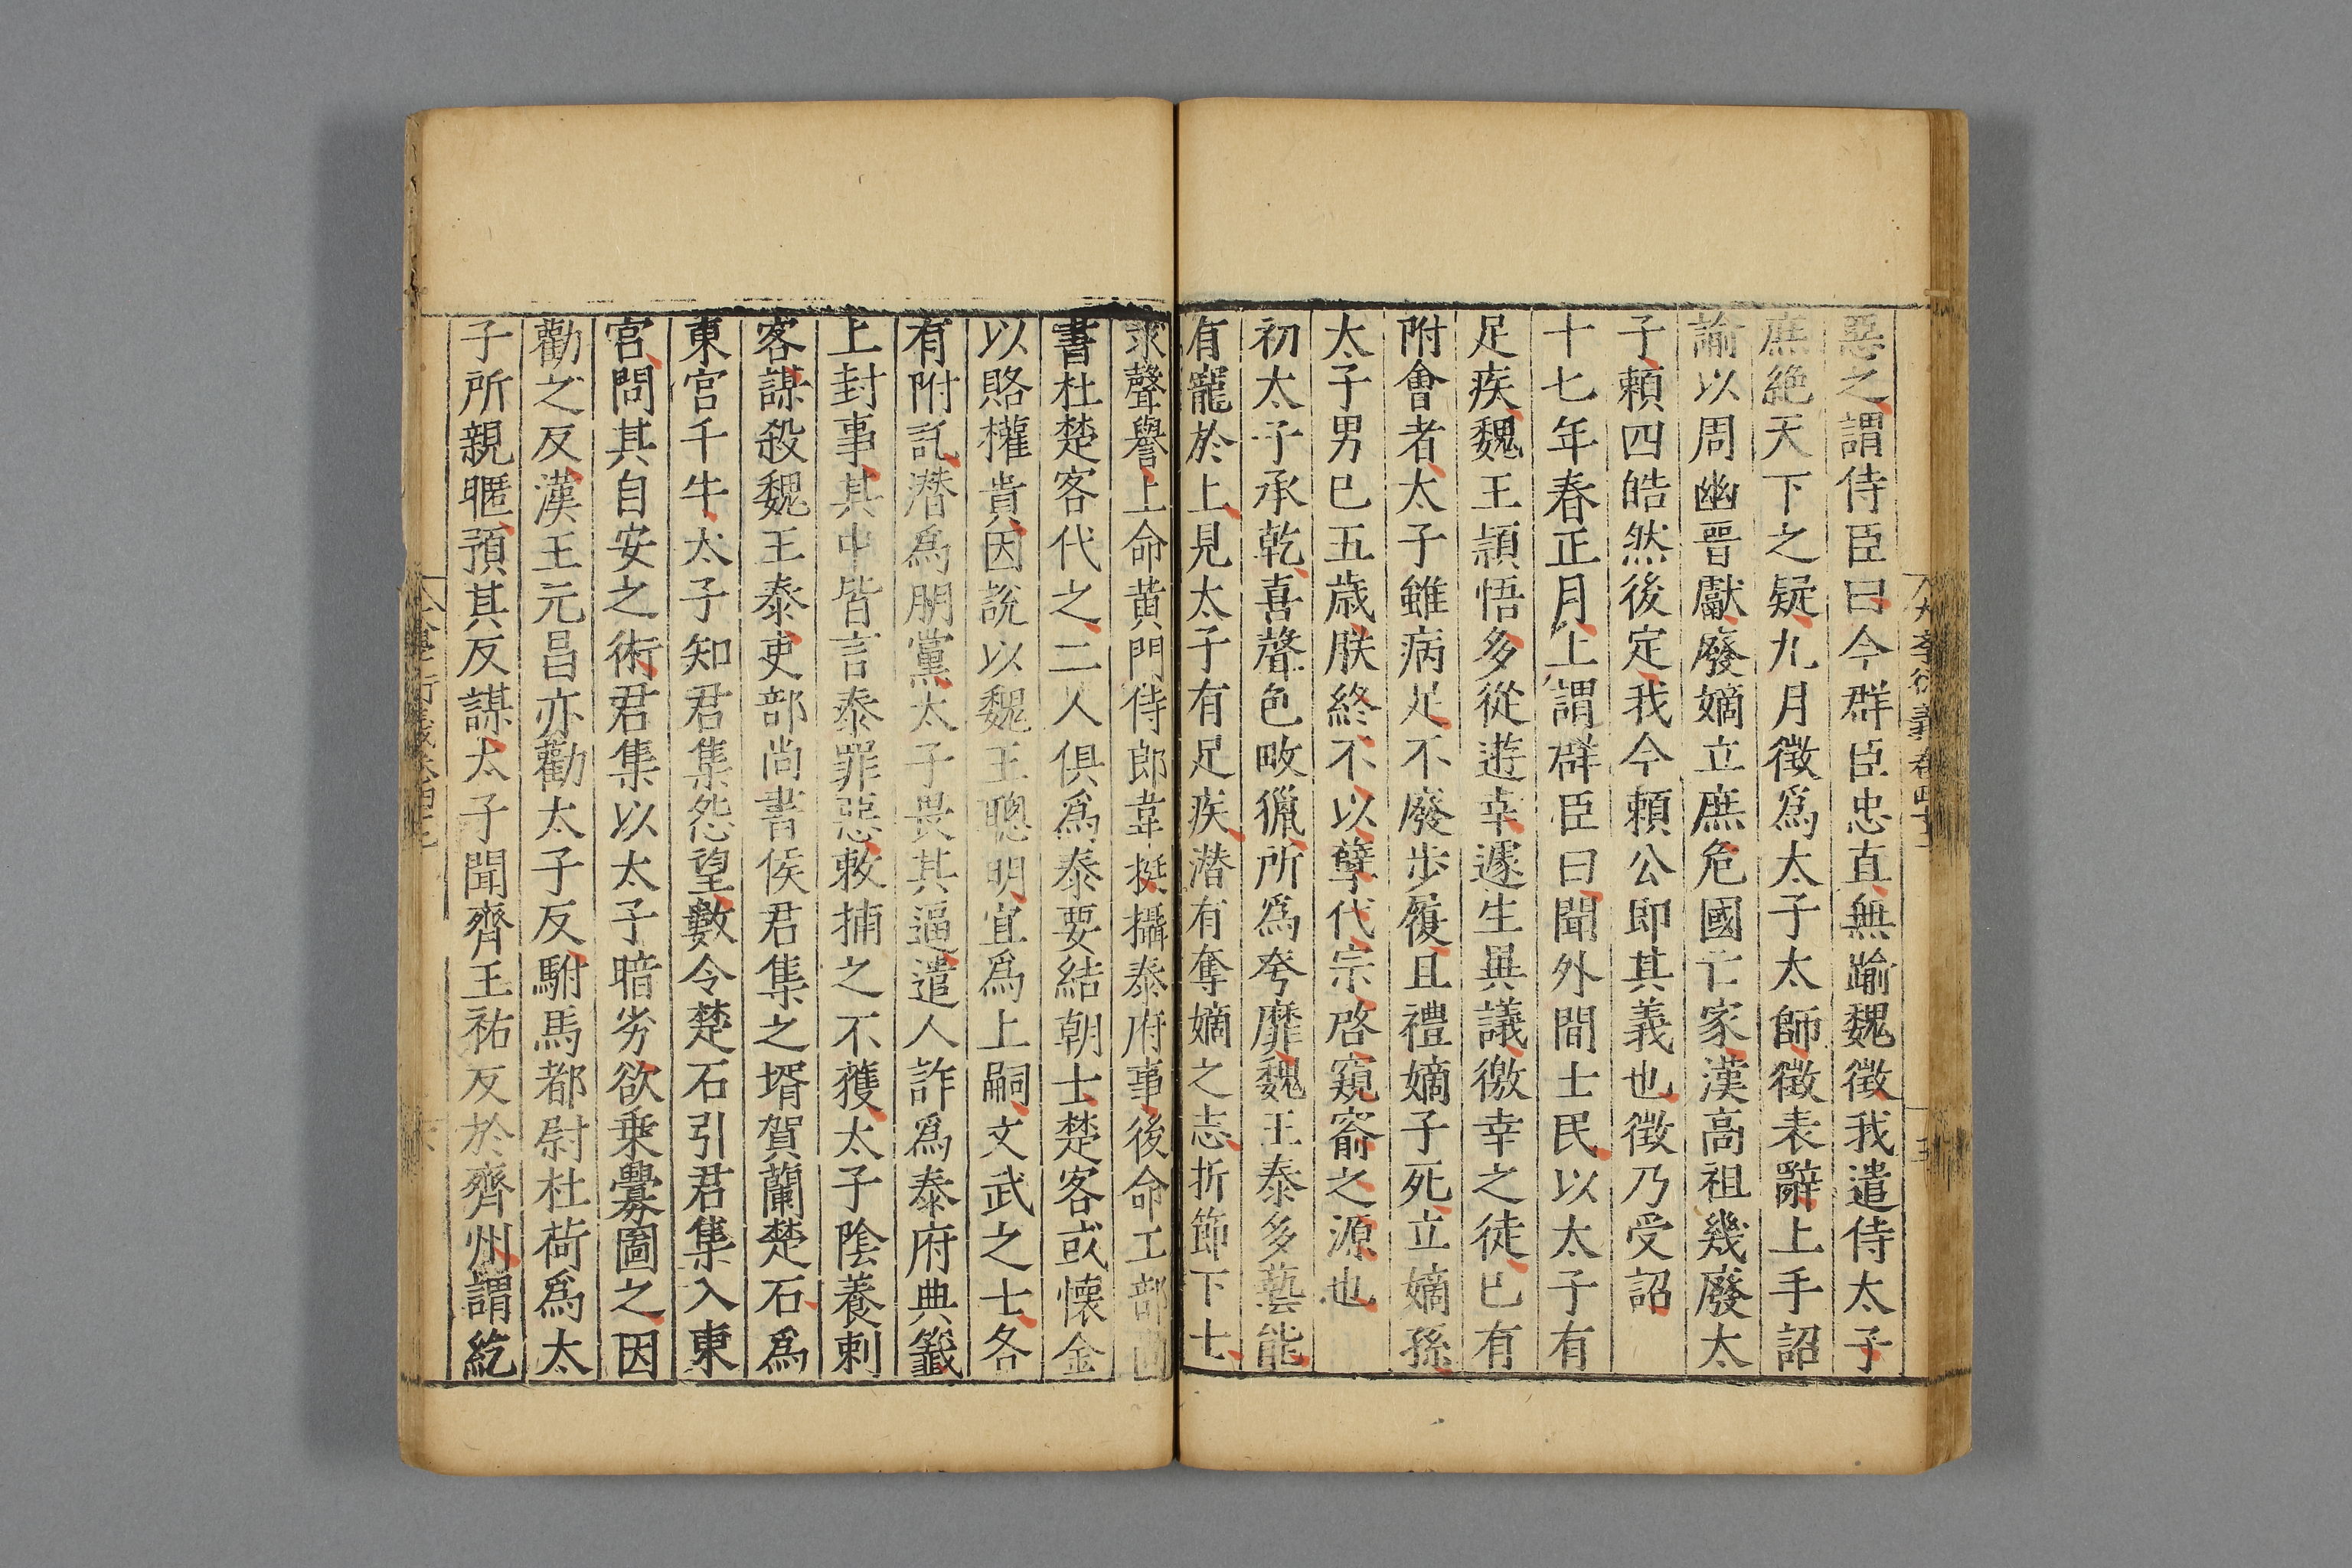 惡之謂侍臣曰今群臣忠直無踰魏徵我遣侍太子
庶絶天下之疑九月徵爲太子太師徵表辭上手詔
諭以周幽晋獻廢嫡立庶危國亡家漢高祖幾廢太
子頼四皓然後定我今頼公即其義也徵乃受詔
十七年春正月上謂群臣曰聞外間士民以太子有
足疾魏王頴悟多從遊幸遽生異議徼幸之徒已有
附會者太子雖病足不廢步履且禮嫡子死立嫡孫
太子男已五歳朕終不以孽代宗啓窺窬之源也
初太子承乾喜聲色畋獵所爲奢靡魏王泰多藝能
有寵於上見太子有足疾潜有奪嫡之志折節下士
求聲譽上命黄門侍郎韋挺攝泰府事後命工部尚
書杜楚客代之二人俱爲泰要結朝士楚客或懐金
以賂權貴因說以魏王聰明宜爲上嗣文武之士各
有附託潜爲朋黨太子畏其逼遣人詐爲泰府典籤
上封事其中皆言泰罪惡敕捕之不獲太子陰養刺
客謀殺魏王泰吏部尚書侯君集之壻賀蘭楚石爲
東宮千牛太子知君集怨望數令楚石引君集入東
宮問其自安之術君集以太子暗劣欲乗釁圖之因
勸之反漢王元昌亦勸太子反駙馬都尉杜荷爲太
子所親暱預其反謀太子聞齊王祐反於齊州謂紇